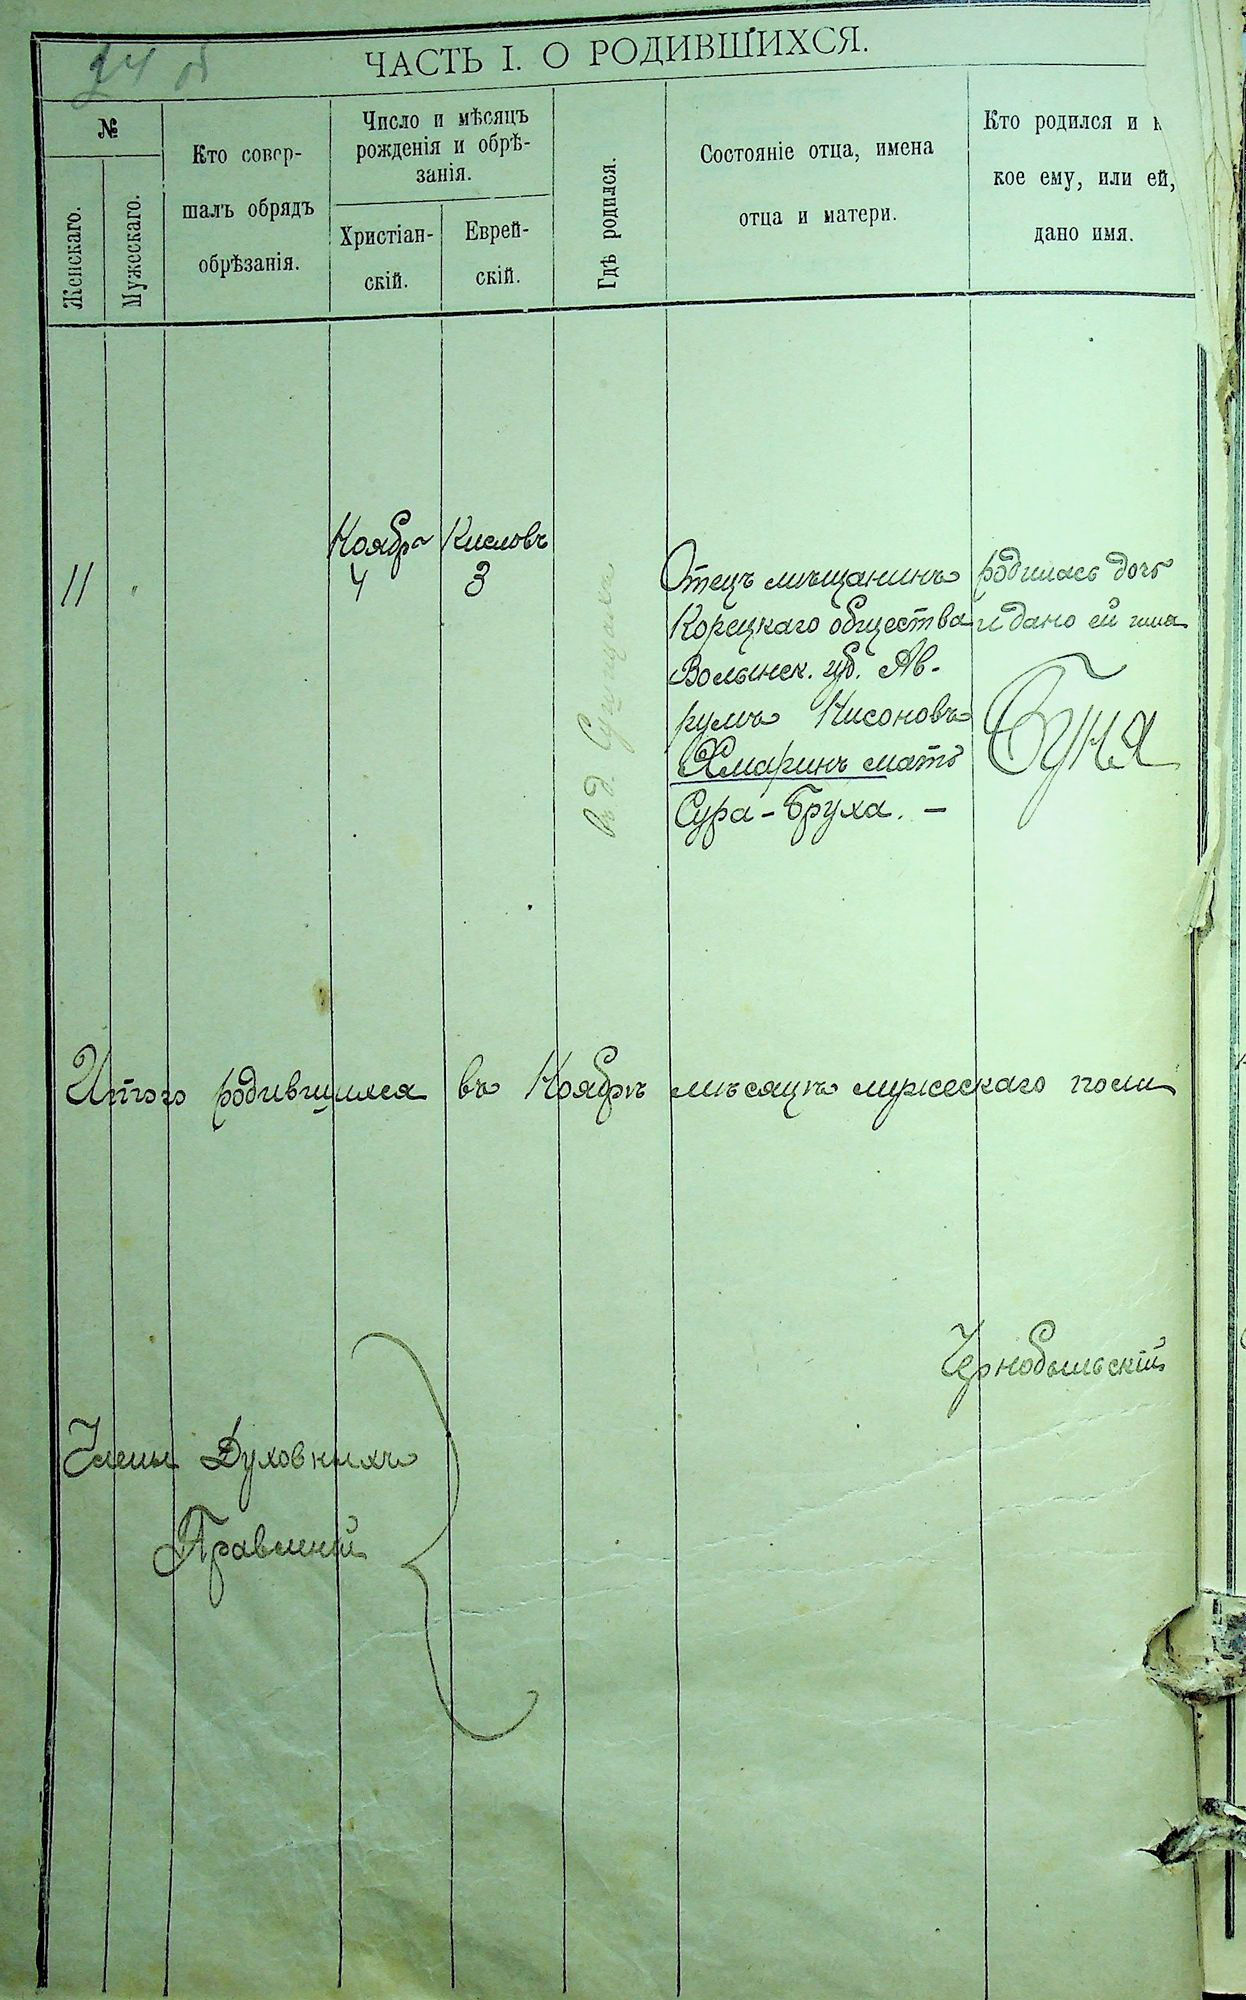 24 об
ЧАСТЬ I. О РОДИВШИХСЯ.
№
Женскаго.
Мужескаго.
Кто совер-
шалъ обрядъ
обрѣзанія.
Число и мѣсяцъ
рожденія и обрѣ-
занія.
Христіан-
скій.
Еврей-
скій.
Гдѣ родился.
Состояніе отца, имена
отца и матери.
Кто родился и к
кое ему, или ей,
дано имя.
11
Ноябр
4
Кисловъ
3
въ д.
Отецъ мѣщанинъ
Корецкаго общества
Волынск. губ. Ав-
румъ Нисоновъ
Хмаринъ мать
Сура-Бруха. —
родилась дочь
и дано ей имя
Буня
Итого родившихся въ Ноябрѣ мѣсяцѣ мужескаго пола
Чернобыльскій
Члены Духовныхъ
Правленій